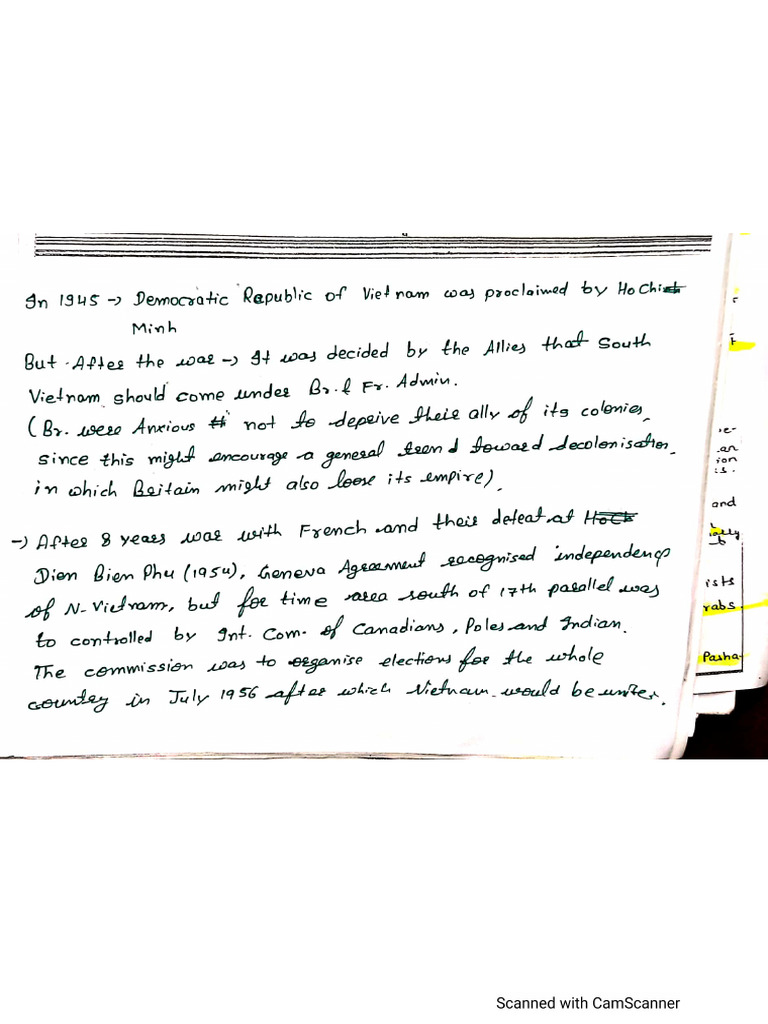 In 1945 → Democratic Republic of Vietnam was proclaimed by Ho Chi
Minh
But After the war → It was decided by the Allies that South
Vietnam should come under Br. & Fr. Admin.
(Br. were Anxious not to deprive their ally of its colonies,
since this might encourage a general trend toward decolonisation,
in which Britain might also loose its empire).
→ After 8 years war with French and their defeat at
Dien Bien Phu (1954), Geneva Agreement recognised independence
of N-Vietnam, but for time area south of 17th parallel was
to controlled by Int. Com. of Canadians, Poles and Indian.
The commission was to organise elections for the whole
country in July 1956 after which Vietnam would be unite.
re-
an
ion
is.
and
ists
rabs
Pasha
Scanned with CamScanner